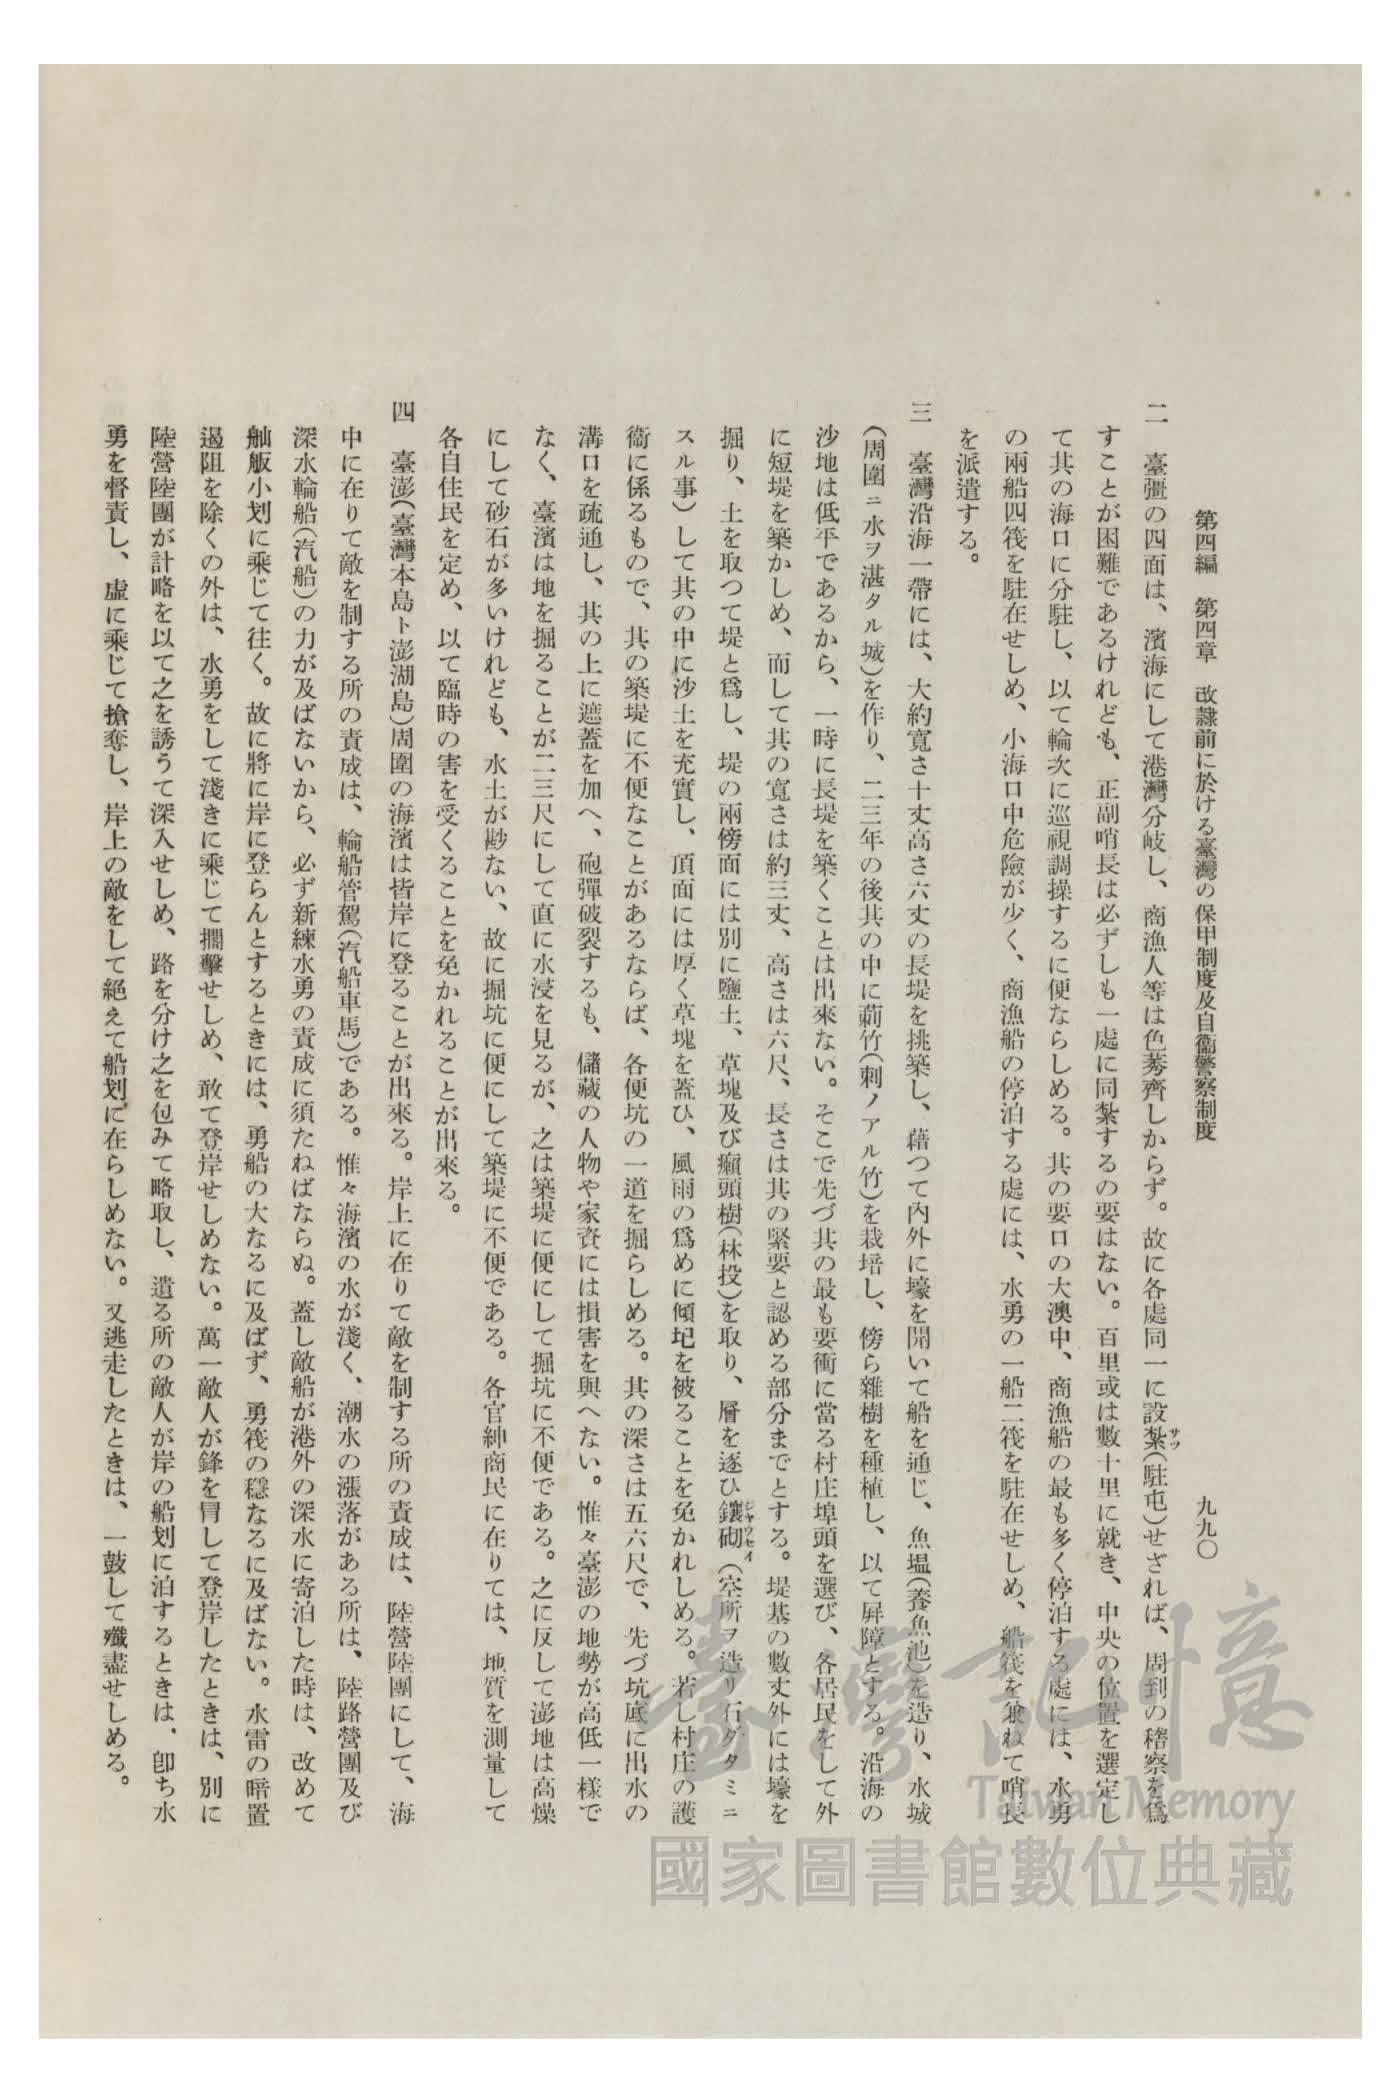 第四編　第四章　改隷前に於ける臺灣の保甲制度及自衞警察制度　九九〇
二　臺疆の四面は、濱海にして港灣分岐し、商漁人等は色莠齊しからず。故に各處同一に設紮(駐屯)せざれば、周到の稽察を爲
サツ
すことが困難であるけれども、正副哨長は必ずしも一處に同紮するの要はない。百里或は數十里に就き、中央の位置を選定し
て其の海口に分駐し、以て輪次に巡視調操するに便ならしめる。其の要口の大澳中、商漁船の最も多く停泊する處には、水勇
の兩船四筏を駐在せしめ、小海口中危險が少く、商漁船の停泊する處には、水勇の一船二筏を駐在せしめ、船筏を兼ねて哨長
を派遣する。
三　臺灣沿海一帶には、大約寬さ十丈高さ六丈の長堤を挑築し、藉つて內外に壕を開いて船を通じ、魚塭(養魚池)を造り、水城
(周圍ニ水ヲ湛タル城)を作り、二三年の後其の中に莿竹(刺ノアル竹)を栽培し、傍ら雜樹を種植し、以て屛障とする。沿海の
沙地は低平であるから、一時に長堤を築くことは出來ない。そこで先づ其の最も要衝に當る村庄埠頭を選び、各居民をして外
に短堤を築かしめ、而して其の寬さは約三丈、高さは六尺、長さは其の緊要と認める部分までとする。堤基の數丈外には壕を
掘り、土を取つて堤と爲し、堤の兩傍面には別に鹽土、草塊及び癩頭樹(林投)を取り、層を逐ひ鑲砌(空所ヲ造リ石ダタミニ
ジヤウセイ
スル事)して其の中に沙土を充實し、頂面には厚く草塊を蓋ひ、風雨の爲めに傾圮を被ることを免かれしめる。若し村庄の護
衞に係るもので、其の築堤に不便なことがあるならば、各便坑の一道を掘らしめる。其の深さは五六尺で、先づ坑底に出水の
溝口を疏通し、其の上に遮蓋を加へ、砲彈破裂するも、儲藏の人物や家資には損害を與へない。惟々臺澎の地勢が高低一樣で
なく、臺濱は地を掘ることが二三尺にして直に水浸を見るが、之は築堤に便にして掘坑に不便である。之に反して澎地は高燥
にして砂石が多いけれども、水土が尠ない、故に掘坑に便にして築堤に不便である。各官紳商民に在りては、地質を測量して
各自住民を定め、以て臨時の害を受くることを免かれることが出來る。
四　臺澎(臺灣本島ト澎湖島)周圍の海濱は皆岸に登ることが出來る。岸上に在りて敵を制する所の責成は、陸營陸團にして、海
中に在りて敵を制する所の責成は、輪船管駕(汽船車馬)である。惟々海濱の水が淺く、潮水の漲落がある所は、陸路營團及び
深水輪船(汽船)の力が及ばないから、必ず新練水勇の責成に須たねばならぬ。蓋し敵船が港外の深水に寄泊した時は、改めて
舢舨小划に乘じて往く。故に將に岸に登らんとするときには、勇船の大なるに及ばず、勇筏の穩なるに及ばない。水雷の暗置
遏阻を除くの外は、水勇をして淺きに乘じて擱擊せしめ、敢て登岸せしめない。萬一敵人が鋒を冒して登岸したときは、別に
陸營陸團が計略を以て之を誘うて深入せしめ、路を分け之を包みて略取し、遺る所の敵人が岸の船划に泊するときは、卽ち水
勇を督責し、虛に乘じて搶奪し、岸上の敵をして絕えて船划に在らしめない。又逃走したときは、一鼓して殲盡せしめる。
臺灣記憶
Taiwan Memory
國家圖書館數位典藏